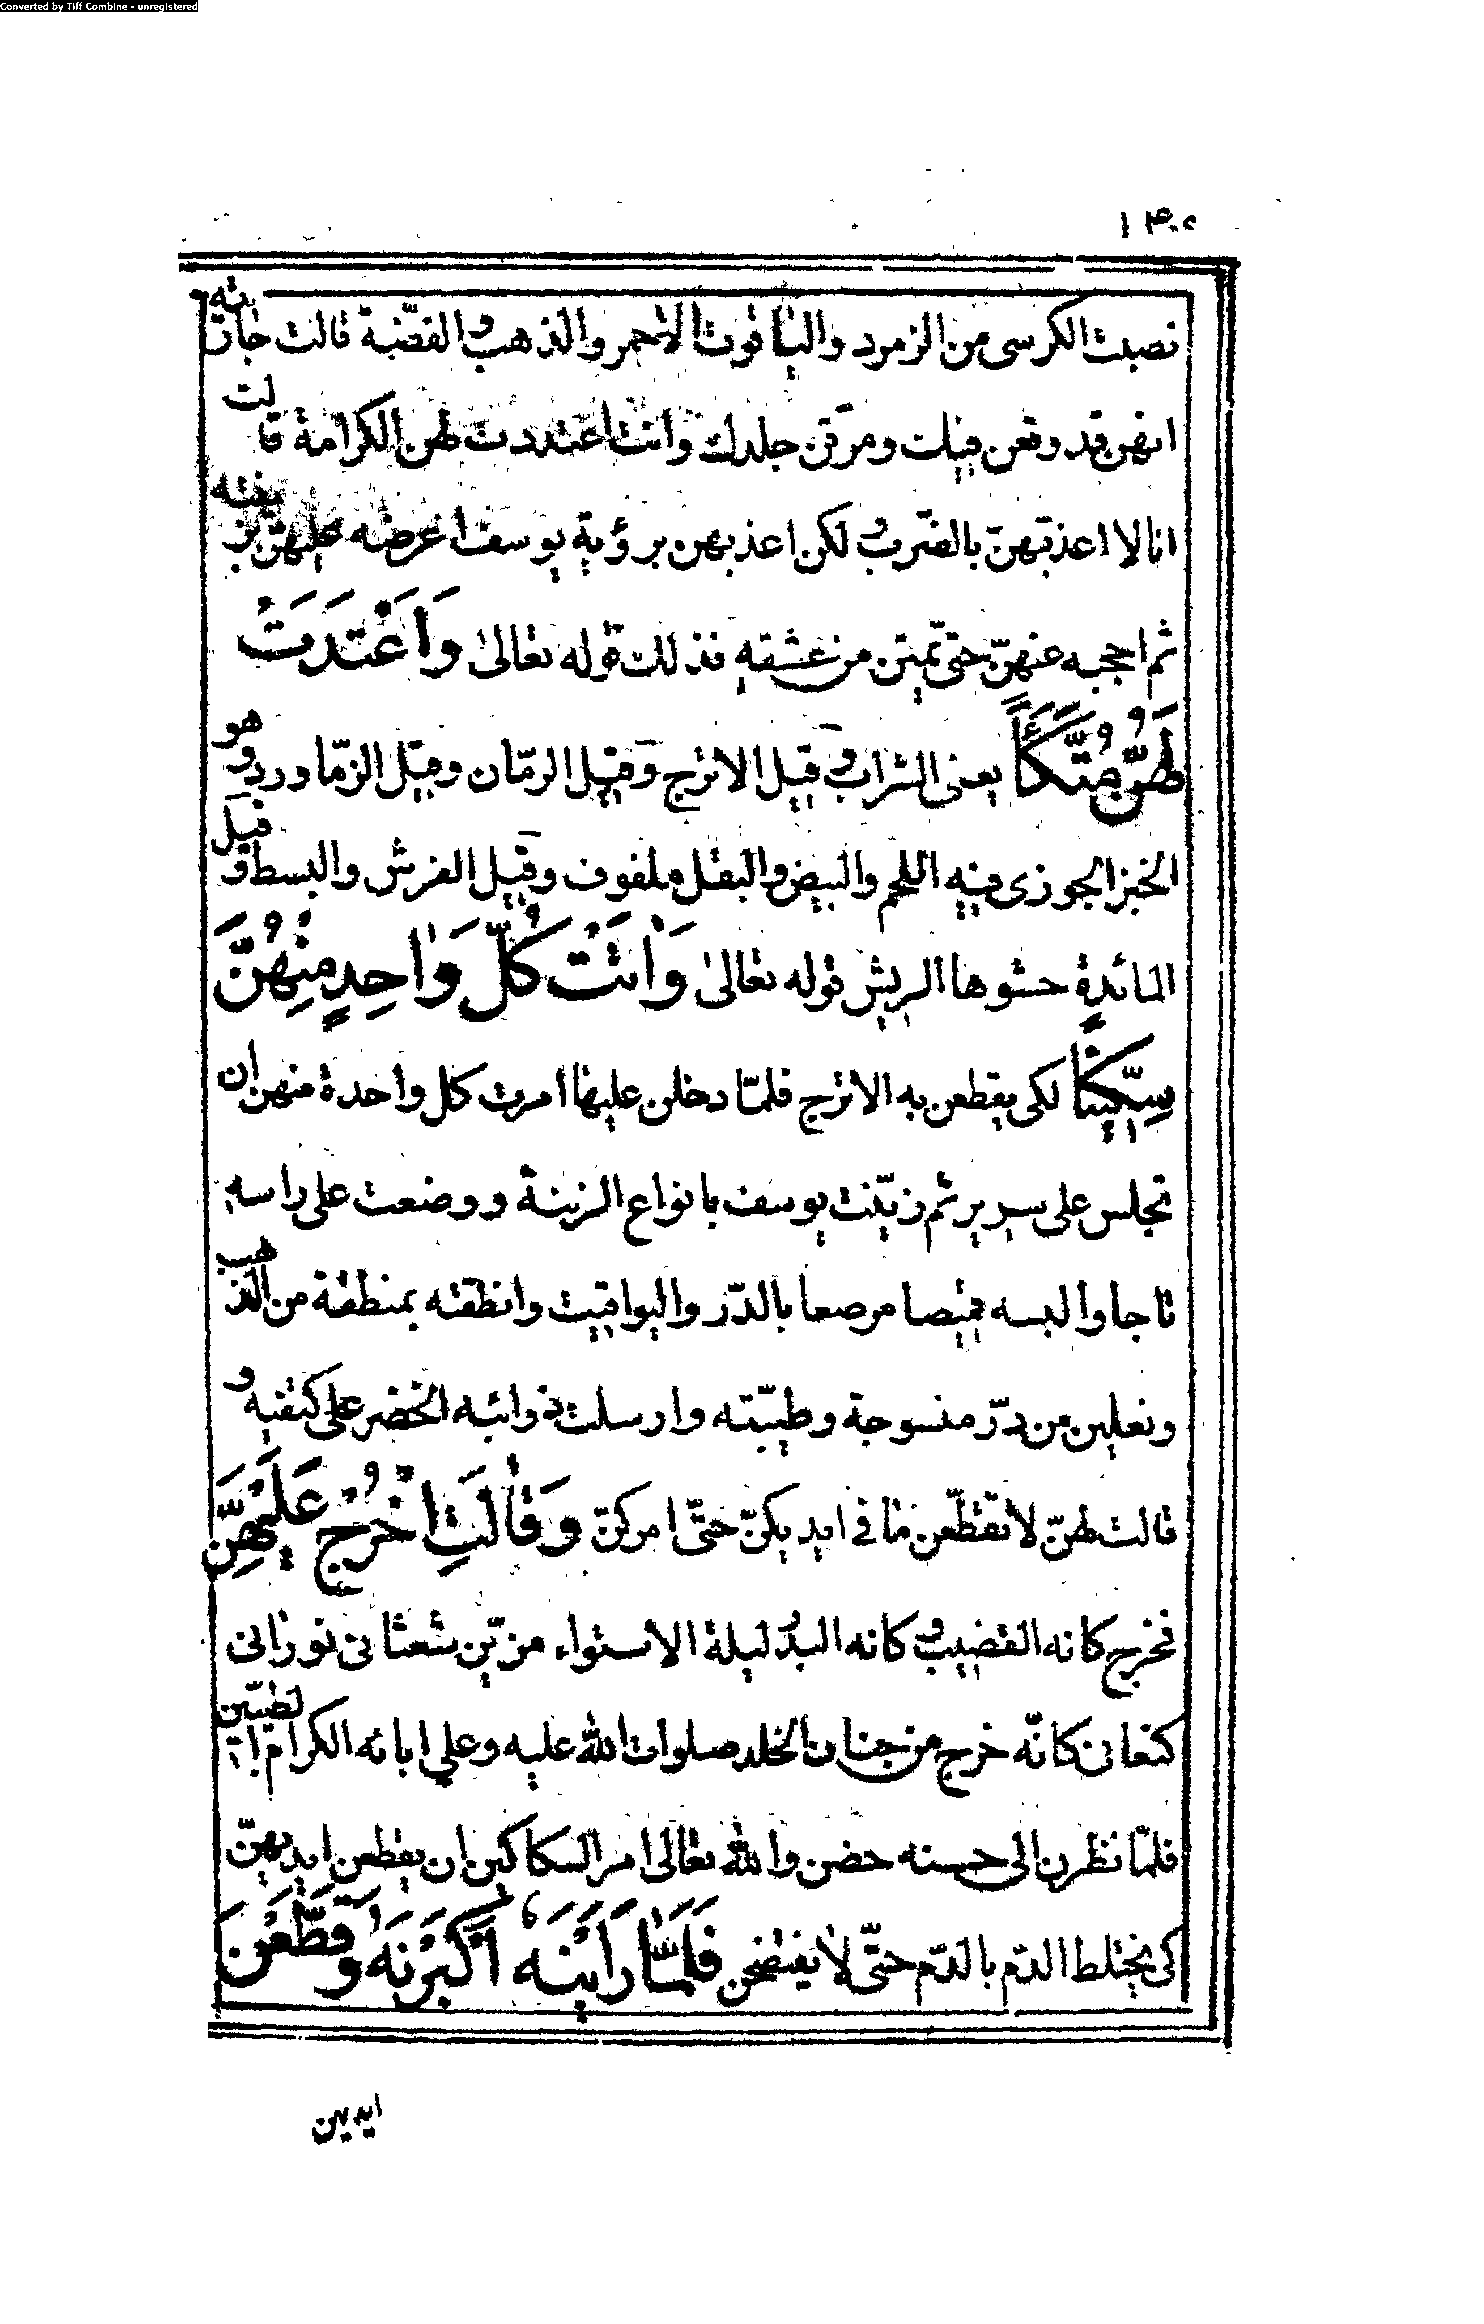 Converted by Tiff Combine - unregistered
١٤٠٥
نصبت الكرسى من الزمرد والياقوت الاحمر والذهب والفضّة قالت جاريته
انهن قد وقعن فيك ومزقن جلدك وانت اعتددت لهن الكرامة قالت
انا لا اعذبهنّ بالضرب لكن اعذبهن برؤية يوسف اعرضه عليهنّ بزينته
ثم احجبه عنهنّ حتى تمتن من عشقه فذلك قوله تعالىٰ وَاَعْتَدَتْ
لَهُنَّ مُتَّكَأً يعنى الشراب وقيل الاترج وقيل الرمّان وقيل الزماورد وهو
الخبز الجوزى فيه اللحم والبيض والبقل ملفوف وقيل الفرش والبسط وقيل
المائدة حشوها الريش قوله تعالىٰ وَاٰتَتْ كُلَّ وَاحِدٍ مِنْهُنَّ
سِكّينًا لكى يقطعن به الاترج فلمّا دخلن عليها امرت كل واحدة منهن ان
تجلس على سرير ثم زيّنت يوسف بانواع الزينة ووضعت على راسه
تاجا والبسه قميصا مرصعا بالدّر واليواقيت وانطقته بمنطقة من الذهب
ونعلين من درّ منسوجة وطيّبته وارسلت ذوائبه الخضر على كتفيه و
قالت لهنّ لا تقطّعن ما فى ايديكنّ حتّى امركنّ وَقٰالَتِ اخْرُجْ عَلَيْهِنَّ
فخرج كانه القضيب وكانه البدر ليلة الاستواء مزيّن شعثانى نورانى
كنعانى كانّه خرج من جنان الخلد صلوات الله عليه وعلى ابائه الكرام
فلمّا نظرن الى حسنه حضن والله تعالى امر السكاكين ان يقطعن ايديهنّ
كى يختلط الدّم بالدّم حتّى لا يفتضحن فَلَمَّا رَاَيْنَهُ اَكْبَرْنَهُ وَقَطَّعْنَ
ايديهن